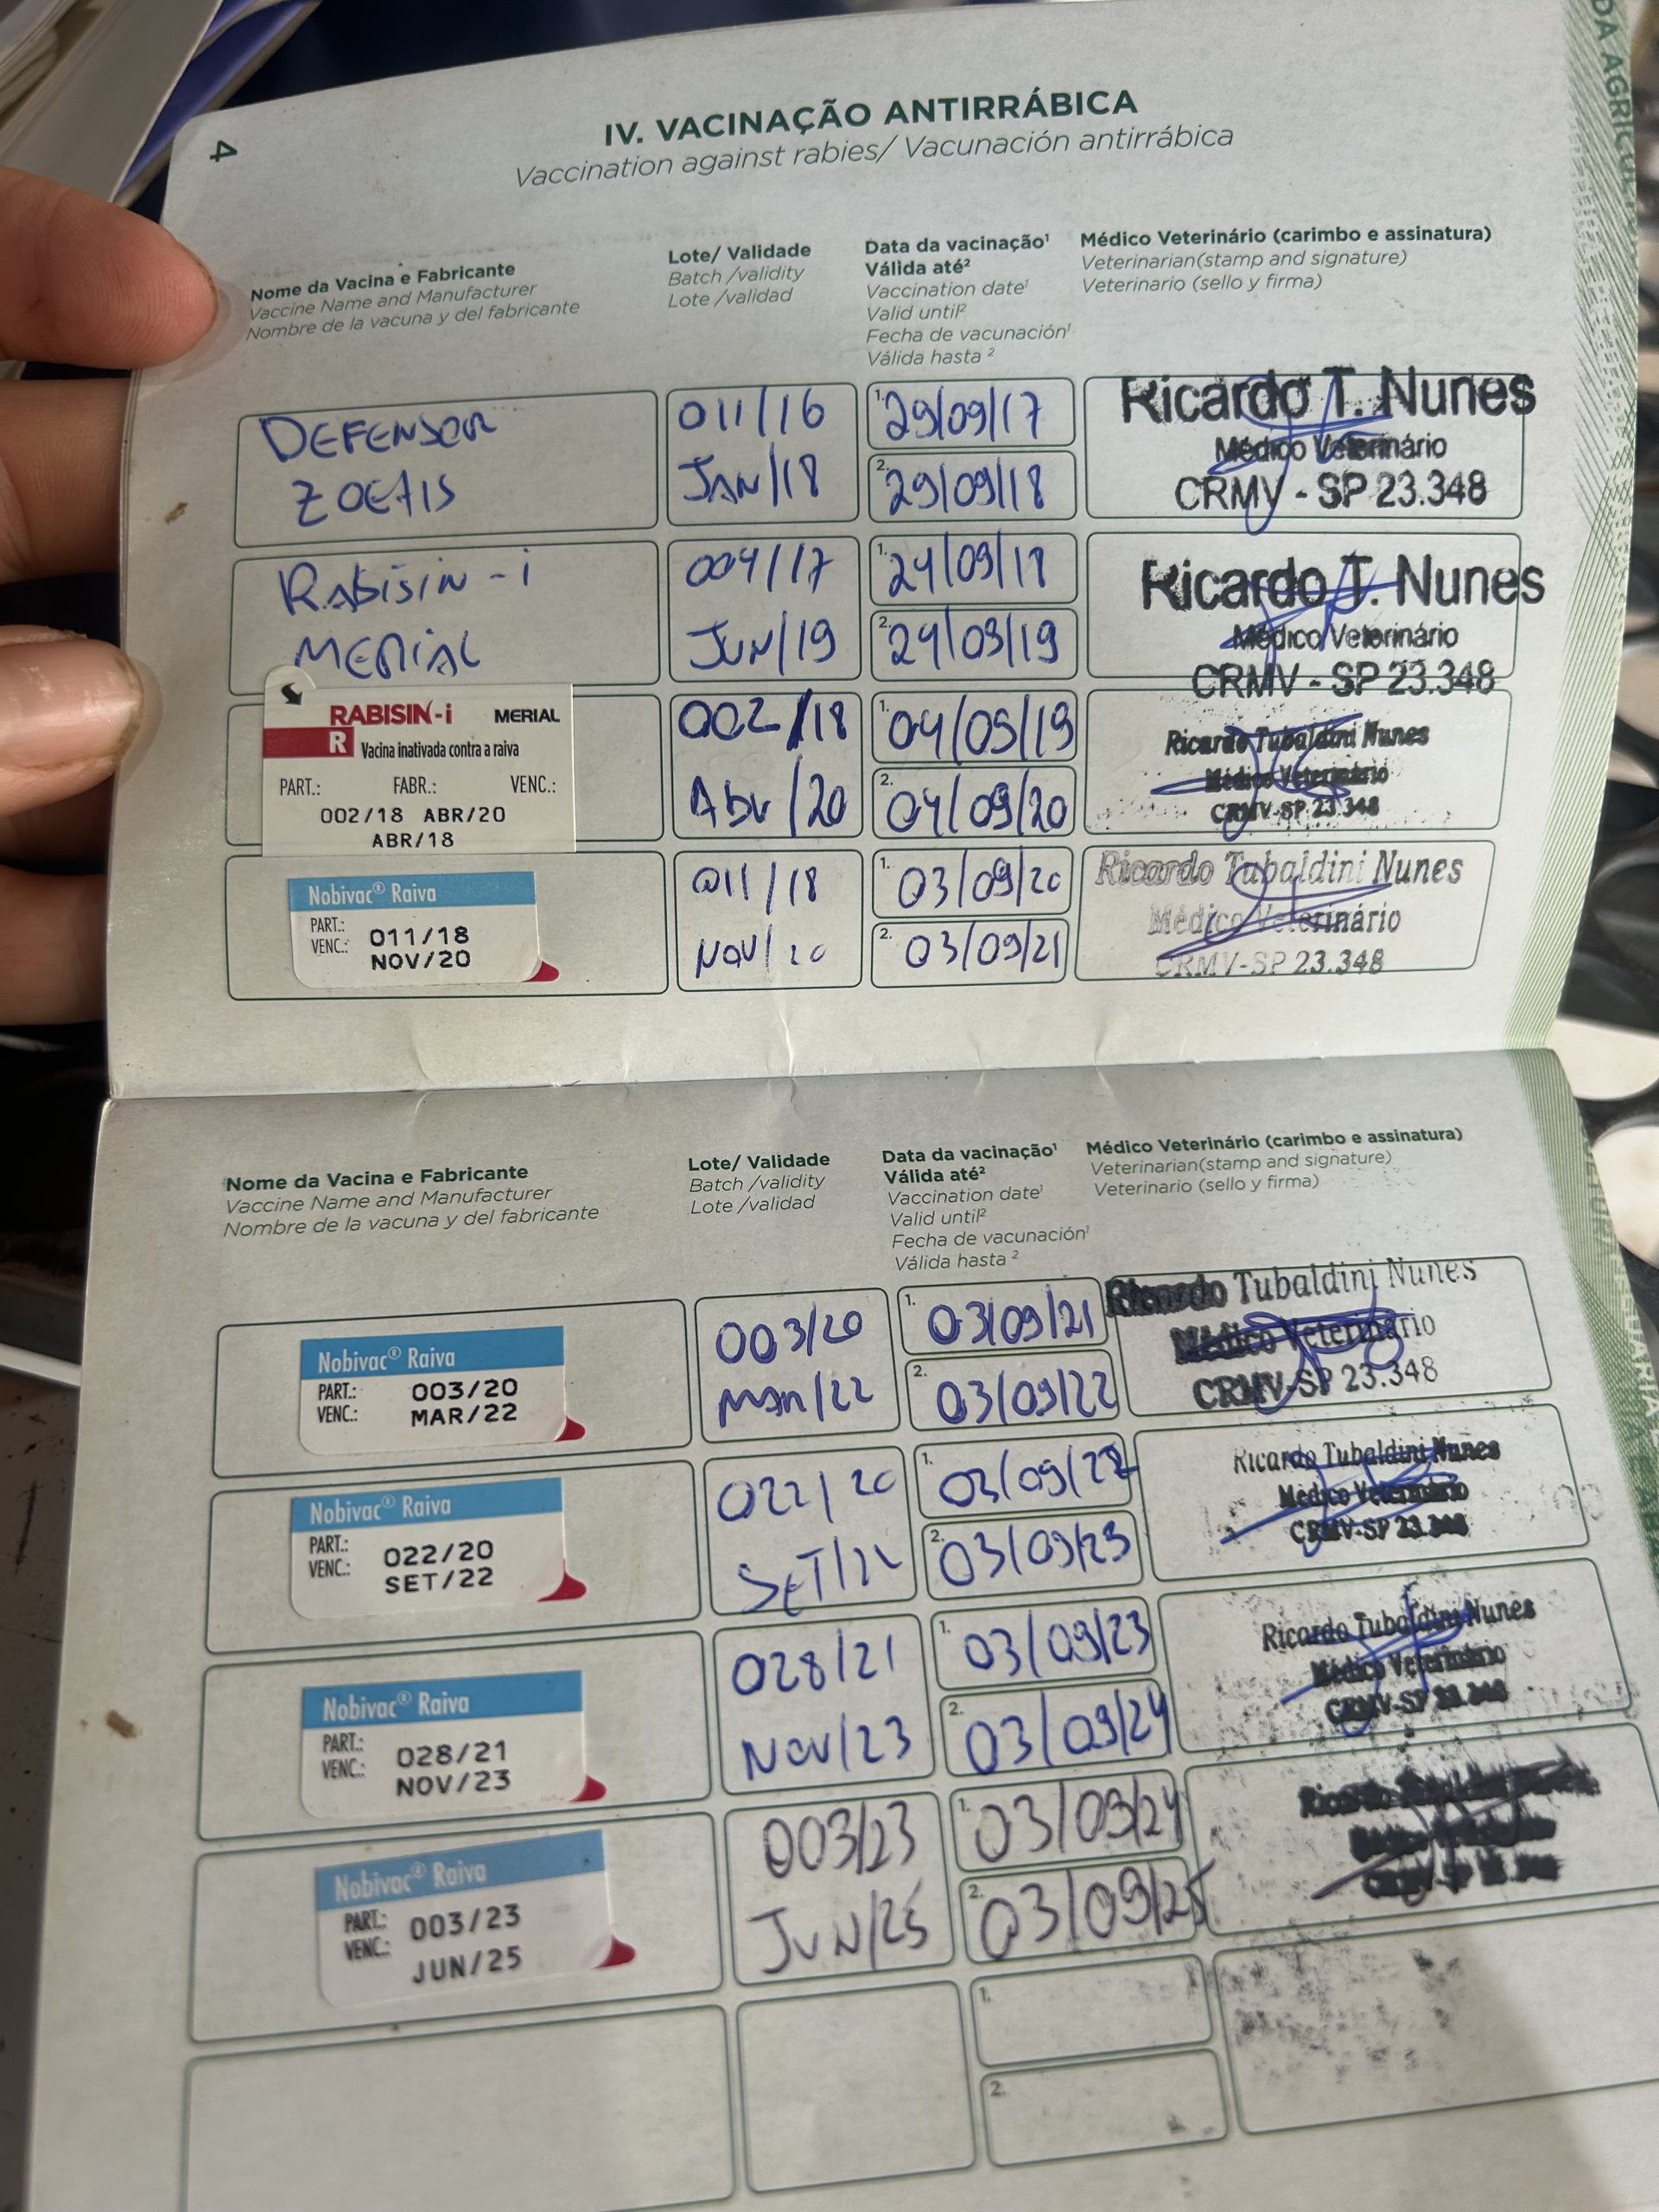 4
IV. VACINAÇÃO ANTIRRÁBICA
Vaccination against rabies/ Vacunación antirrábica
Nome da Vacina e Fabricante
Vaccine Name and Manufacturer
Nombre de la vacuna y del fabricante
Lote/ Validade
Batch /validity
Lote /validad
Data da vacinação¹
Válida até²
Vaccination date¹
Valid until²
Fecha de vacunación¹
Válida hasta ²
Médico Veterinário (carimbo e assinatura)
Veterinarian(stamp and signature)
Veterinario (sello y firma)
DEFENSOR
ZOETIS
011/16
JAN/18
1. 29/09/17
2. 29/09/18
Ricardo T. Nunes
Médico Veterinário
CRMV - SP 23.348
RABISIN-i
MERIAL
004/17
JUN/19
1. 24/09/18
2. 24/09/19
Ricardo T. Nunes
Médico Veterinário
CRMV - SP 23.348
RABISIN-i MERIAL
R Vacina inativada contra a raiva
PART.: FABR.: VENC.:
002/18 ABR/20
ABR/18
002/18
Abr/20
1. 04/09/19
2. 04/09/20
Ricardo Tubaldini Nunes
Médico Veterinário
CRMV-SP 23.348
Nobivac® Raiva
PART.: 011/18
VENC.: NOV/20
011/18
NOV/20
1. 03/09/20
2. 03/09/21
Ricardo Tubaldini Nunes
Médico Veterinário
CRMV-SP 23.348
Nome da Vacina e Fabricante
Vaccine Name and Manufacturer
Nombre de la vacuna y del fabricante
Lote/ Validade
Batch /validity
Lote /validad
Data da vacinação¹
Válida até²
Vaccination date¹
Valid until²
Fecha de vacunación¹
Válida hasta ²
Médico Veterinário (carimbo e assinatura)
Veterinarian(stamp and signature)
Veterinario (sello y firma)
Nobivac® Raiva
PART.: 003/20
VENC.: MAR/22
003/20
Mar/22
1. 03/09/21
2. 03/09/22
Ricardo Tubaldini Nunes
Médico Veterinário
CRMV-SP 23.348
Nobivac® Raiva
PART.: 022/20
VENC.: SET/22
022/20
SET/22
1. 03/09/22
2. 03/09/23
Ricardo Tubaldini Nunes
Médico Veterinário
CRMV-SP 23.348
Nobivac® Raiva
PART.: 028/21
VENC.: NOV/23
028/21
NOV/23
1. 03/09/23
2. 03/09/24
Ricardo Tubaldini Nunes
Médico Veterinário
CRMV-SP 23.348
Nobivac® Raiva
PART.: 003/23
VENC.: JUN/25
003/23
JUN/25
1. 03/09/24
2. 03/09/25
Ricardo
1.
2.